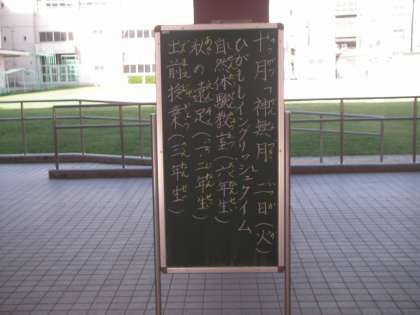 十月「神無月」二日(火)
ひがしイングリッシュタイム
自然体験教室(六年生)
秋の遠足(一・二年生)
出前授業(三年生)